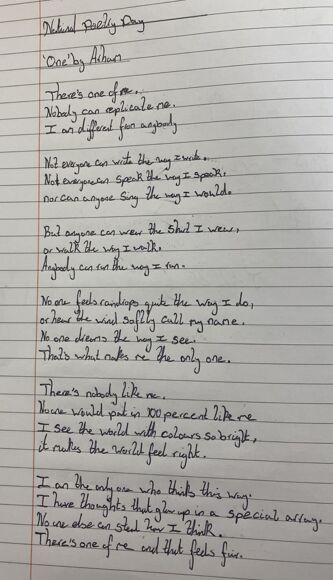 National Poetry Day
'One' by Arham
There's one of me.
Nobody can replicate me.
I am different from anybody
Not everyone can write the way I write.
Not everyone can speak the way I speak,
nor can anyone sing the way I would.
But anyone can wear the shirt I wear,
or walk the way I walk.
Anybody can run the way I run.
No one feels raindrops quite the way I do,
or hear the wind softly call my name.
No one dreams the way I see.
That's what makes me the only one.
There's nobody like me.
No one would put in 100 percent like me
I see the world with colours so bright,
it makes the world feel right.
I am the only one who thinks this way.
I have thoughts that glow up in a special array.
No one else can steal how I think.
There's one of me and that feels fair.